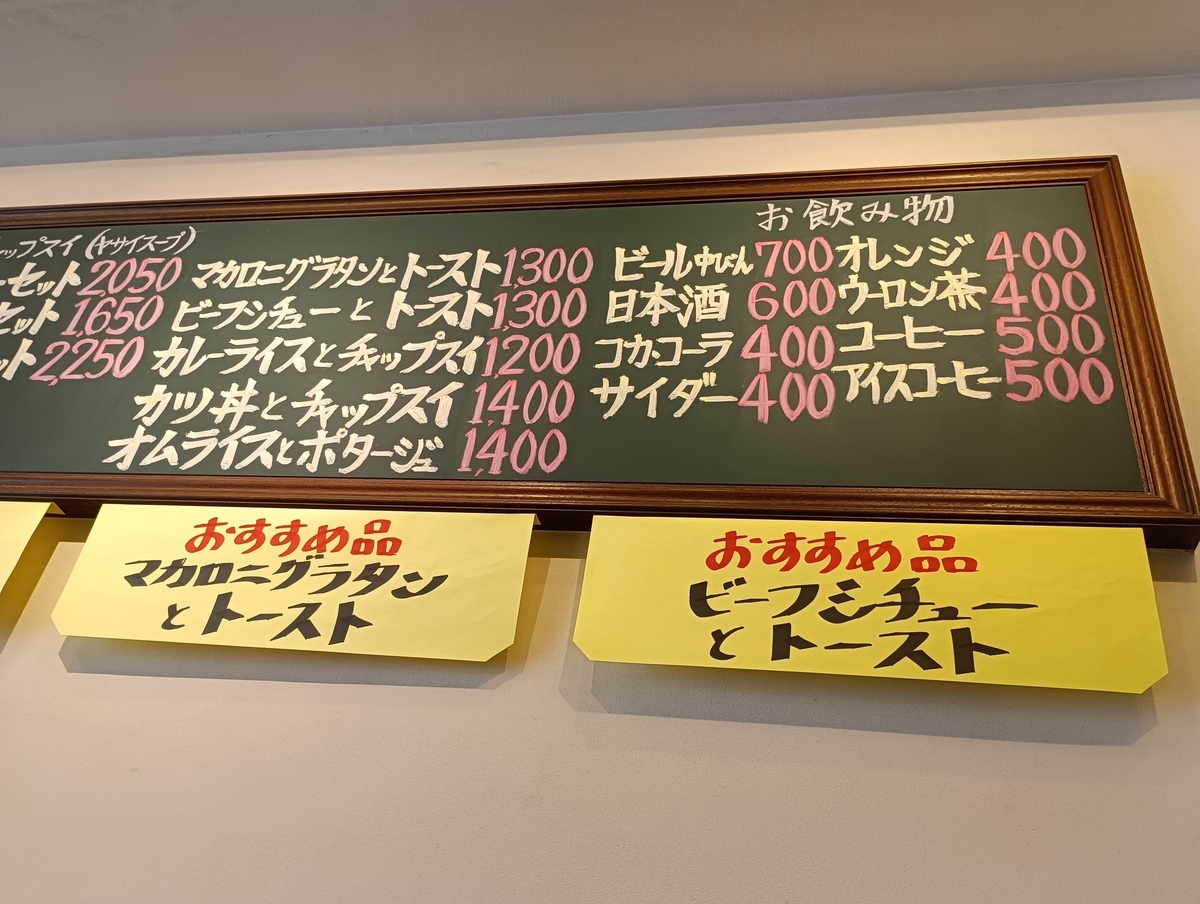 ップスイ(ヤサイスープ)
ーセット 2050
セット 1,650
ット 2,250
マカロニグラタンとトースト 1300
ビーフシチューとトースト 1,300
カレーライスとチャップスイ 1,200
カツ丼とチャップスイ 1,400
オムライスとポタージュ 1,400
お飲み物
ビール中びん 700
日本酒 600
コカ・コーラ 400
サイダー 400
オレンジ 400
ウーロン茶 400
コーヒー 500
アイスコーヒー 500
おすすめ品
マカロニグラタン
とトースト
おすすめ品
ビーフシチュー
とトースト